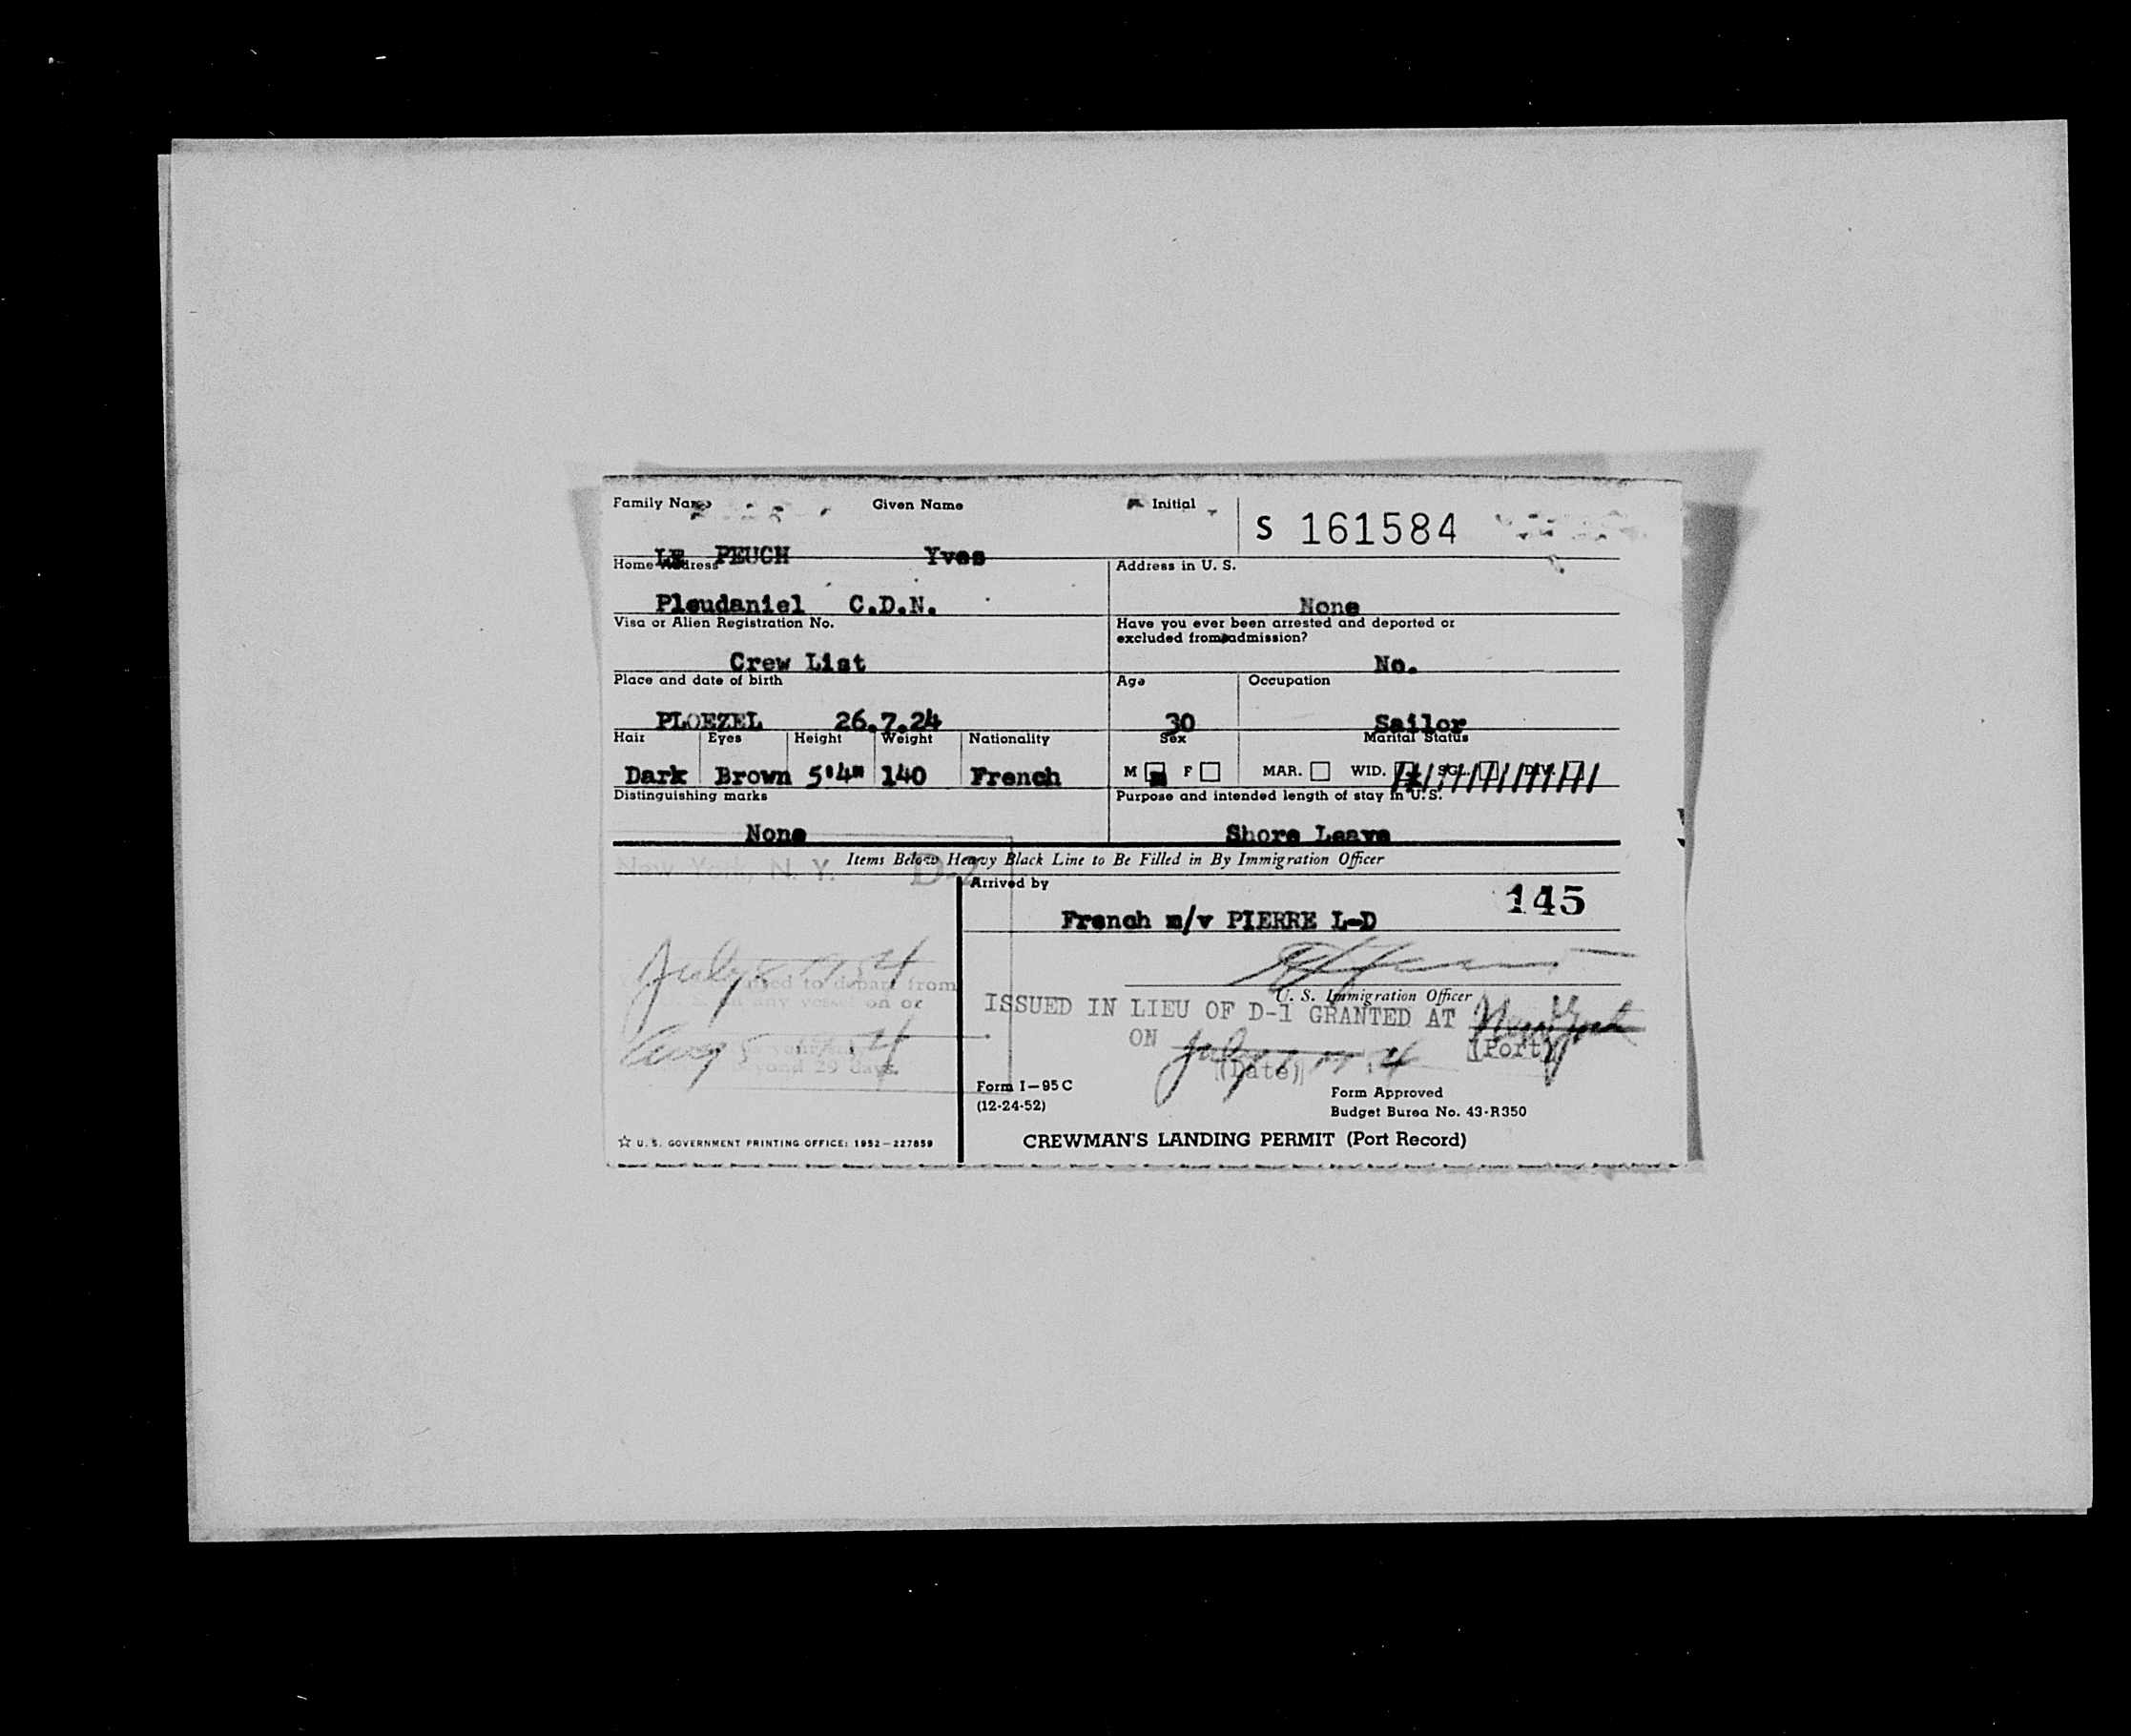 Family Name Given Name Initial
S 161584
LE PEUCH Yves
Home Address Address in U. S.
Pleudaniel C.D.N. None
Visa or Alien Registration No. Have you ever been arrested and deported or
excluded from admission?
Crew List No.
Place and date of birth Age Occupation
PLOEZEL 26.7.24 30 Sailor
Hair Eyes Height Weight Nationality Sex Marital Status
Dark Brown 5'4" 140 French M F MAR. WID. SGL. DIV.
Distinguishing marks Purpose and intended length of stay in U. S.
None Shore Leave
Items Below Heavy Black Line to Be Filled in By Immigration Officer
New York, N. Y. D-
Arrived by 145
French m/v PIERRE L-D
July 1954
to depart from
any on or
U. S. Immigration Officer
ISSUED IN LIEU OF D-1 GRANTED AT New York
ON July (Port)
(Date)
Aug 5
29 days.
Form I-95 C
(12-24-52)
Form Approved
Budget Burea No. 43-R350
☆ U. S. GOVERNMENT PRINTING OFFICE: 1952-227859
CREWMAN'S LANDING PERMIT (Port Record)